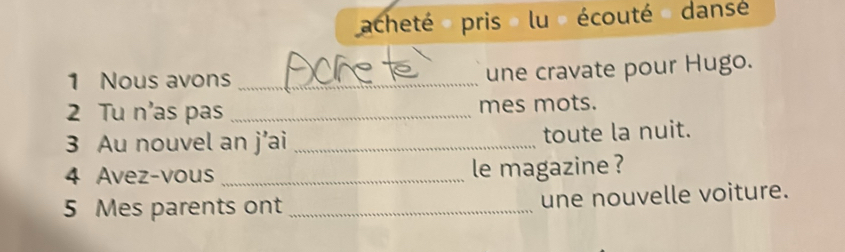 acheté • pris • lu • écouté • dansé
1 Nous avons Achetè une cravate pour Hugo.
2 Tu n'as pas ........ mes mots.
3 Au nouvel an j'ai ........ toute la nuit.
4 Avez-vous ........ le magazine ?
5 Mes parents ont ........ une nouvelle voiture.